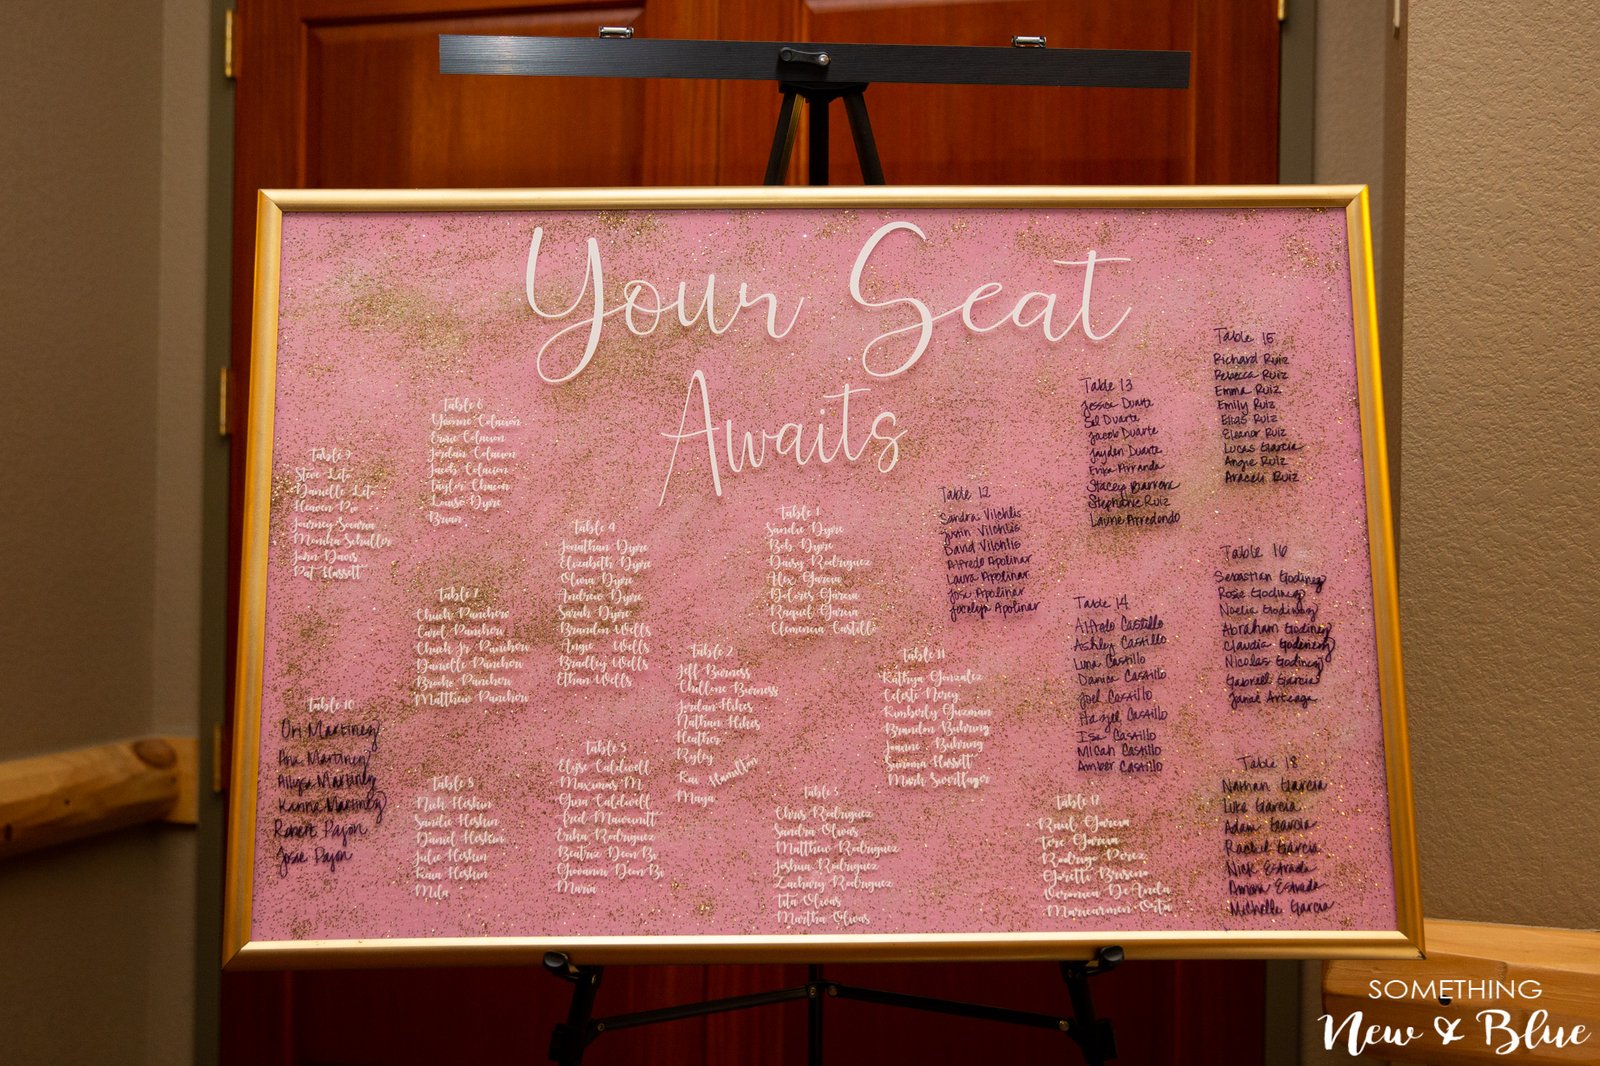 Your Seat
Awaits
Table 9
Steve Leto
Danielle Leto
Heaven Pio
Journey
Monika Schuller
John Davis
Pat Hassett
Table 10
Ori Martinez
Ana Martinez
Allysa Martinez
Karina Martinez
Robert Pajon
Josie Pajon
Table 6
Yvonne Colacion
Ernie Colacion
Jordan Colacion
Jacob Colacion
Taylor Chacon
Louise Dyre
Brian
Table 7
Chuck Panchero
Carol Panchero
Chuck Jr Panchero
Danielle Panchero
Brooke Panchero
Matthew Panchero
Table 8
Nick Heskin
Sandie Heskin
Daniel Heskin
Julie Heskin
Kaia Heskin
Mila
Table 4
Jonathan Dyre
Elizabeth Dyre
Olivia Dyre
Andrew Dyre
Sarah Dyre
Brandon Wells
Angie Wells
Bradley Wells
Ethan Wells
Table 5
Elyse Caldwell
Maximas M.
Gina Caldwell
Fred
Erika Rodriguez
Beatriz Deon Bi
Giovanni Deon Bi
Maria
Table 2
Jeff Burness
Chellone Burness
Jordan Hikes
Nathan Hikes
Heather
Ryley
Kai Hamilton
Maya
Table 1
Sandie Dyre
Bob Dyre
Daisy Rodriguez
Alex Garcia
Dolores Garcia
Raquel Garcia
Clemencia Castillo
Table 3
Chris Rodriguez
Sandra Olivas
Matthew Rodriguez
Joshua Rodriguez
Zachary Rodriguez
Tita Olivas
Martha Olivas
Table 11
Kathya Gonzalez
Celeste Nerey
Kimberly Guzman
Brandon Buhring
Joanne Buhring
Summa Hassett
Mark Swortfager
Table 12
Sandra Vilchlis
Justin Vilchlis
David Vilchlis
Alfredo Apolinar
Laura Apolinar
Jose Apolinar
Jocelyn Apolinar
Table 13
Jessica Duarte
Sal Duarte
Jacob Duarte
Jayden Duarte
Erika Arranda
Stacey Barrera
Stephanie Ruiz
Laurie Arredondo
Table 14
Alfredo Castillo
Ashley Castillo
Luna Castillo
Danica Castillo
Joel Castillo
Hazjel Castillo
Isa Castillo
Micah Castillo
Amber Castillo
Table 17
Raul Garcia
Tere Garcia
Rodrigo Perez
Gorette Briseno
Veronica De Anda
Maricarmen Orta
Table 15
Richard Ruiz
Rebecca Ruiz
Emma Ruiz
Emily Ruiz
Elias Ruiz
Eleanor Ruiz
Lucas Garcia
Angie Ruiz
Araceli Ruiz
Table 16
Sebastian Godinez
Rosie Godinez
Noelia Godinez
Abraham Godinez
Claudia Godinez
Nicolas Godinez
Gabriell Garcia
Janae Arteaga
Table 18
Nathan Garcia
Luke Garcia
Adam Garcia
Rachel Garcia
Nick Estrada
Amaya Estrada
Michelle Garcia
SOMETHING
New & Blue